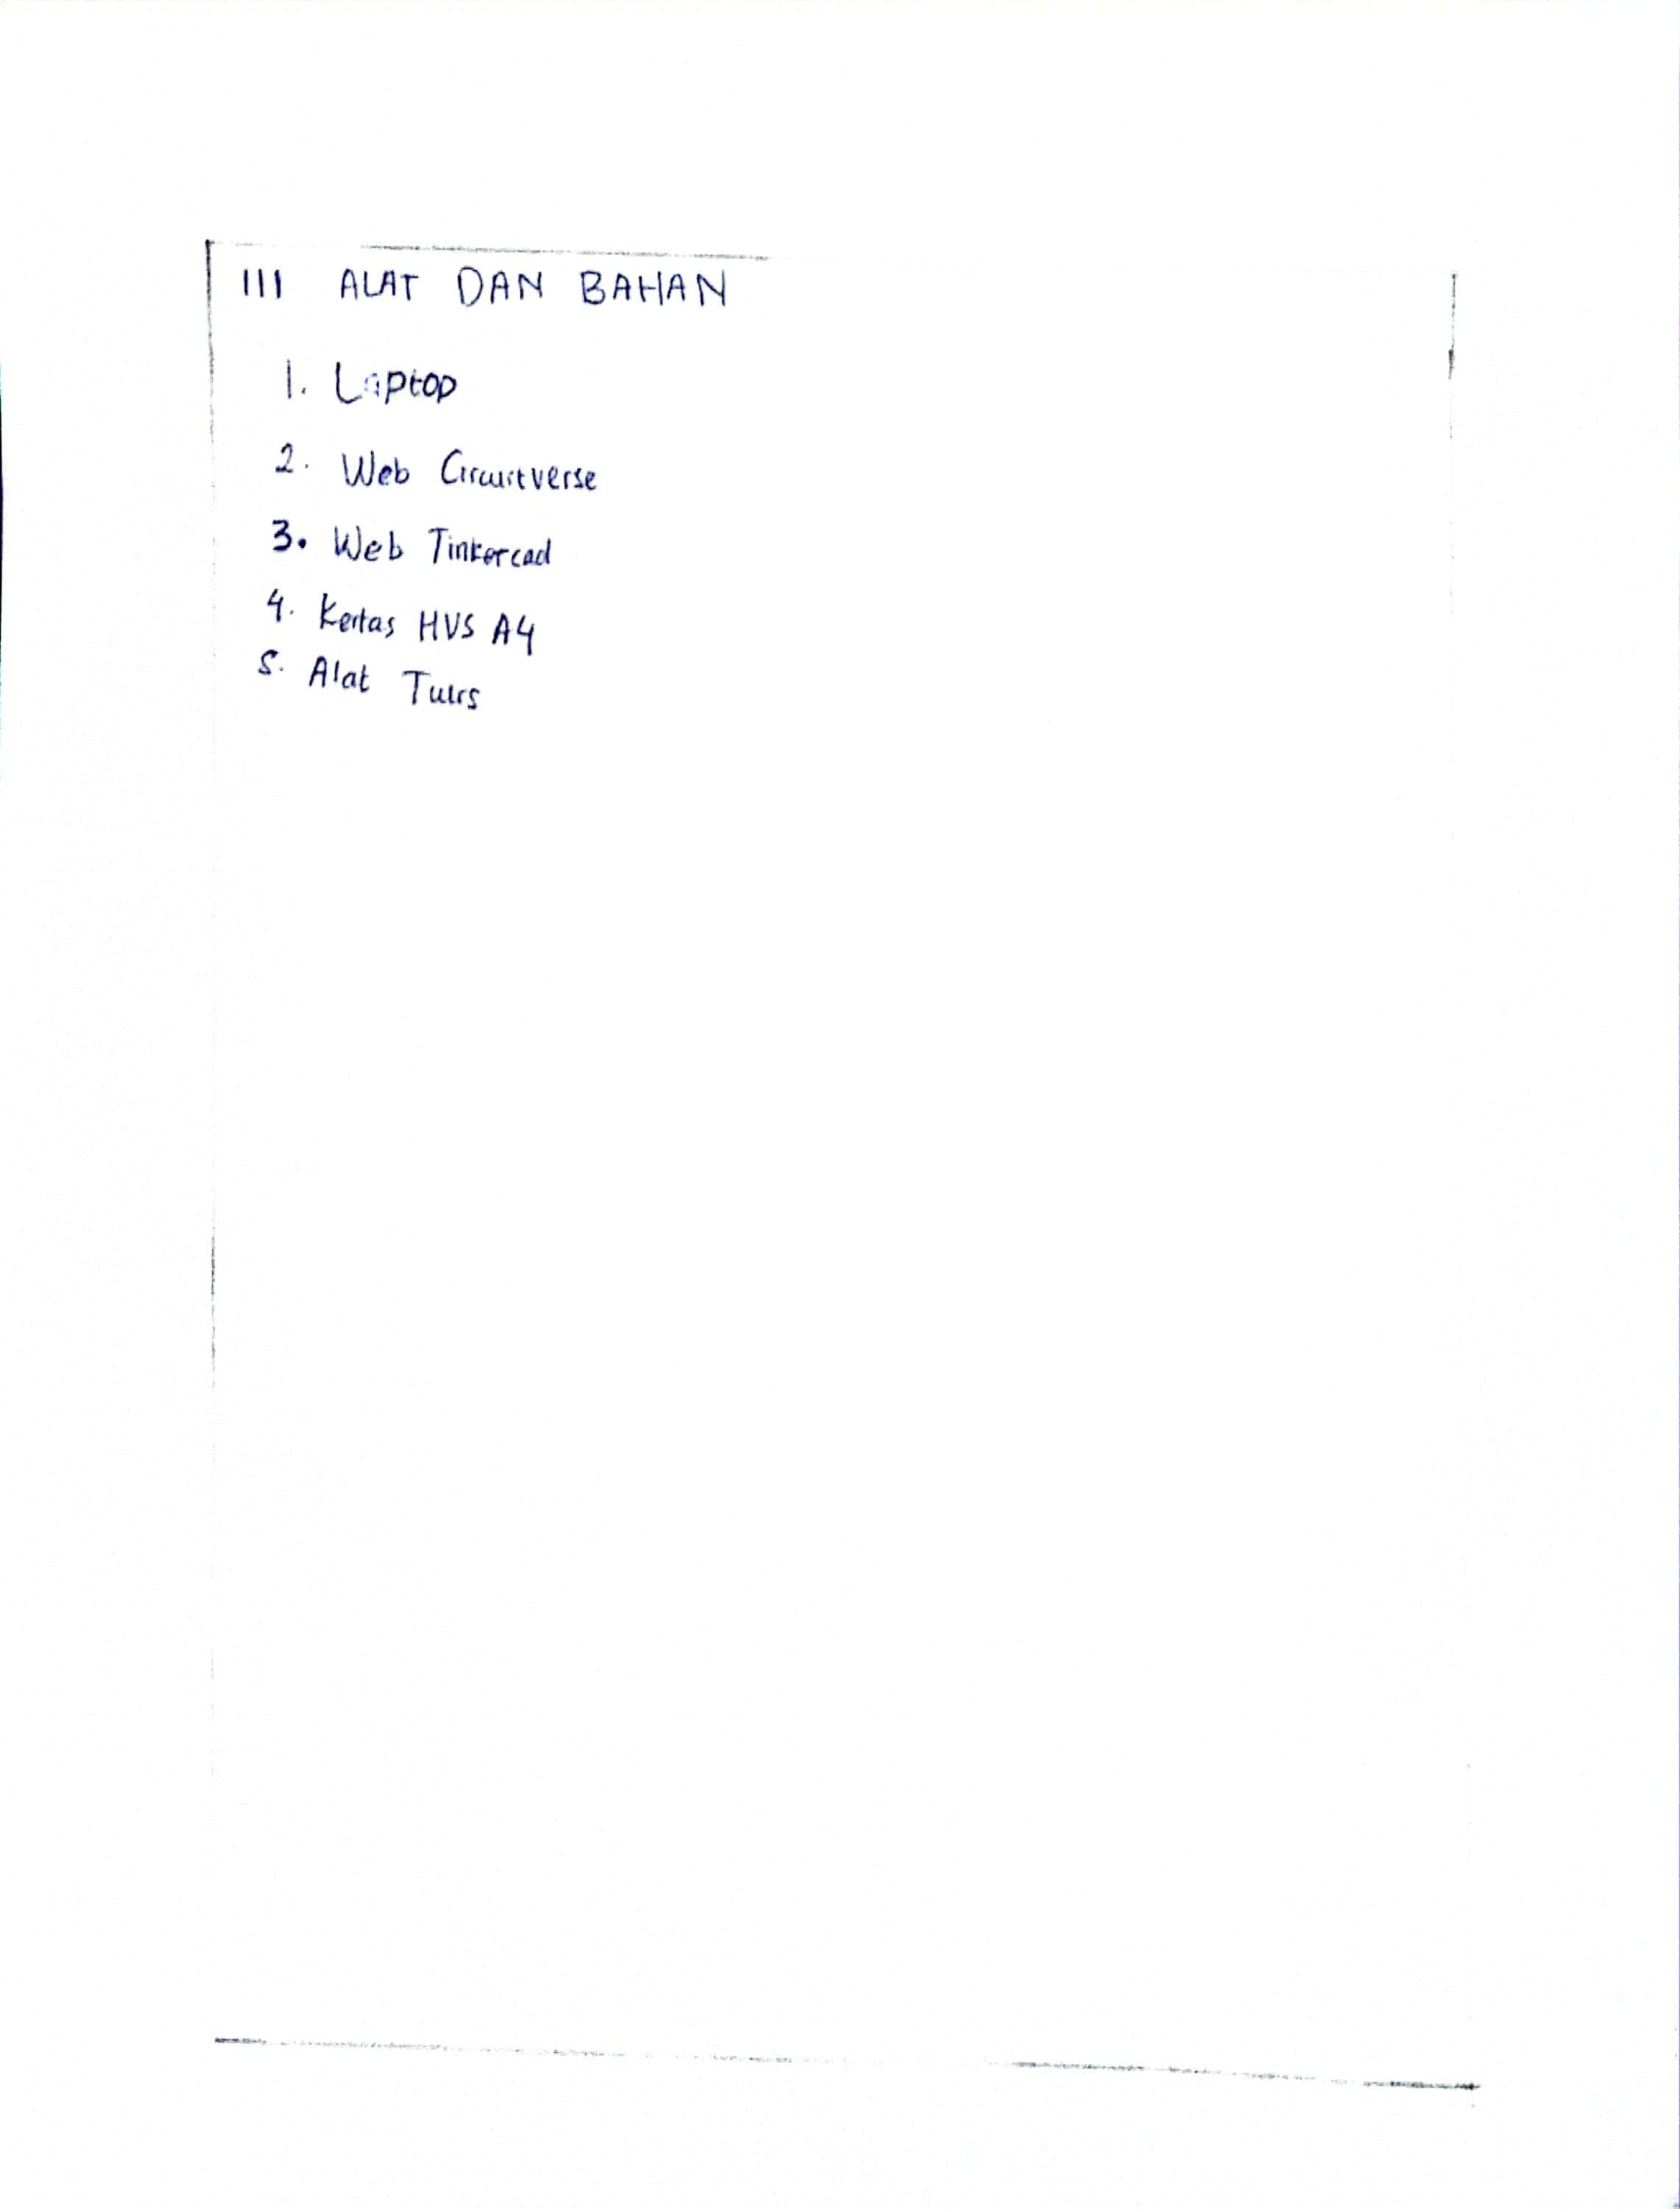 III ALAT DAN BAHAN
1. Laptop
2. Web Circuitverse
3. Web Tinkercad
4. Kertas HVS A4
5. Alat Tulis